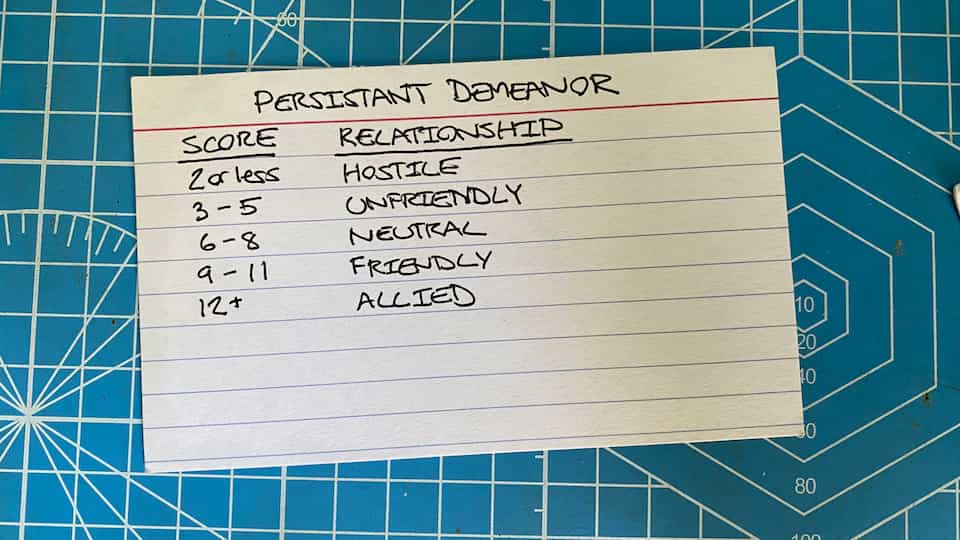 PERSISTANT DEMEANOR
SCORE RELATIONSHIP
2 or less HOSTILE
3-5 UNFRIENDLY
6-8 NEUTRAL
9-11 FRIENDLY
12+ ALLIED
60
10
20
40
60
80
100